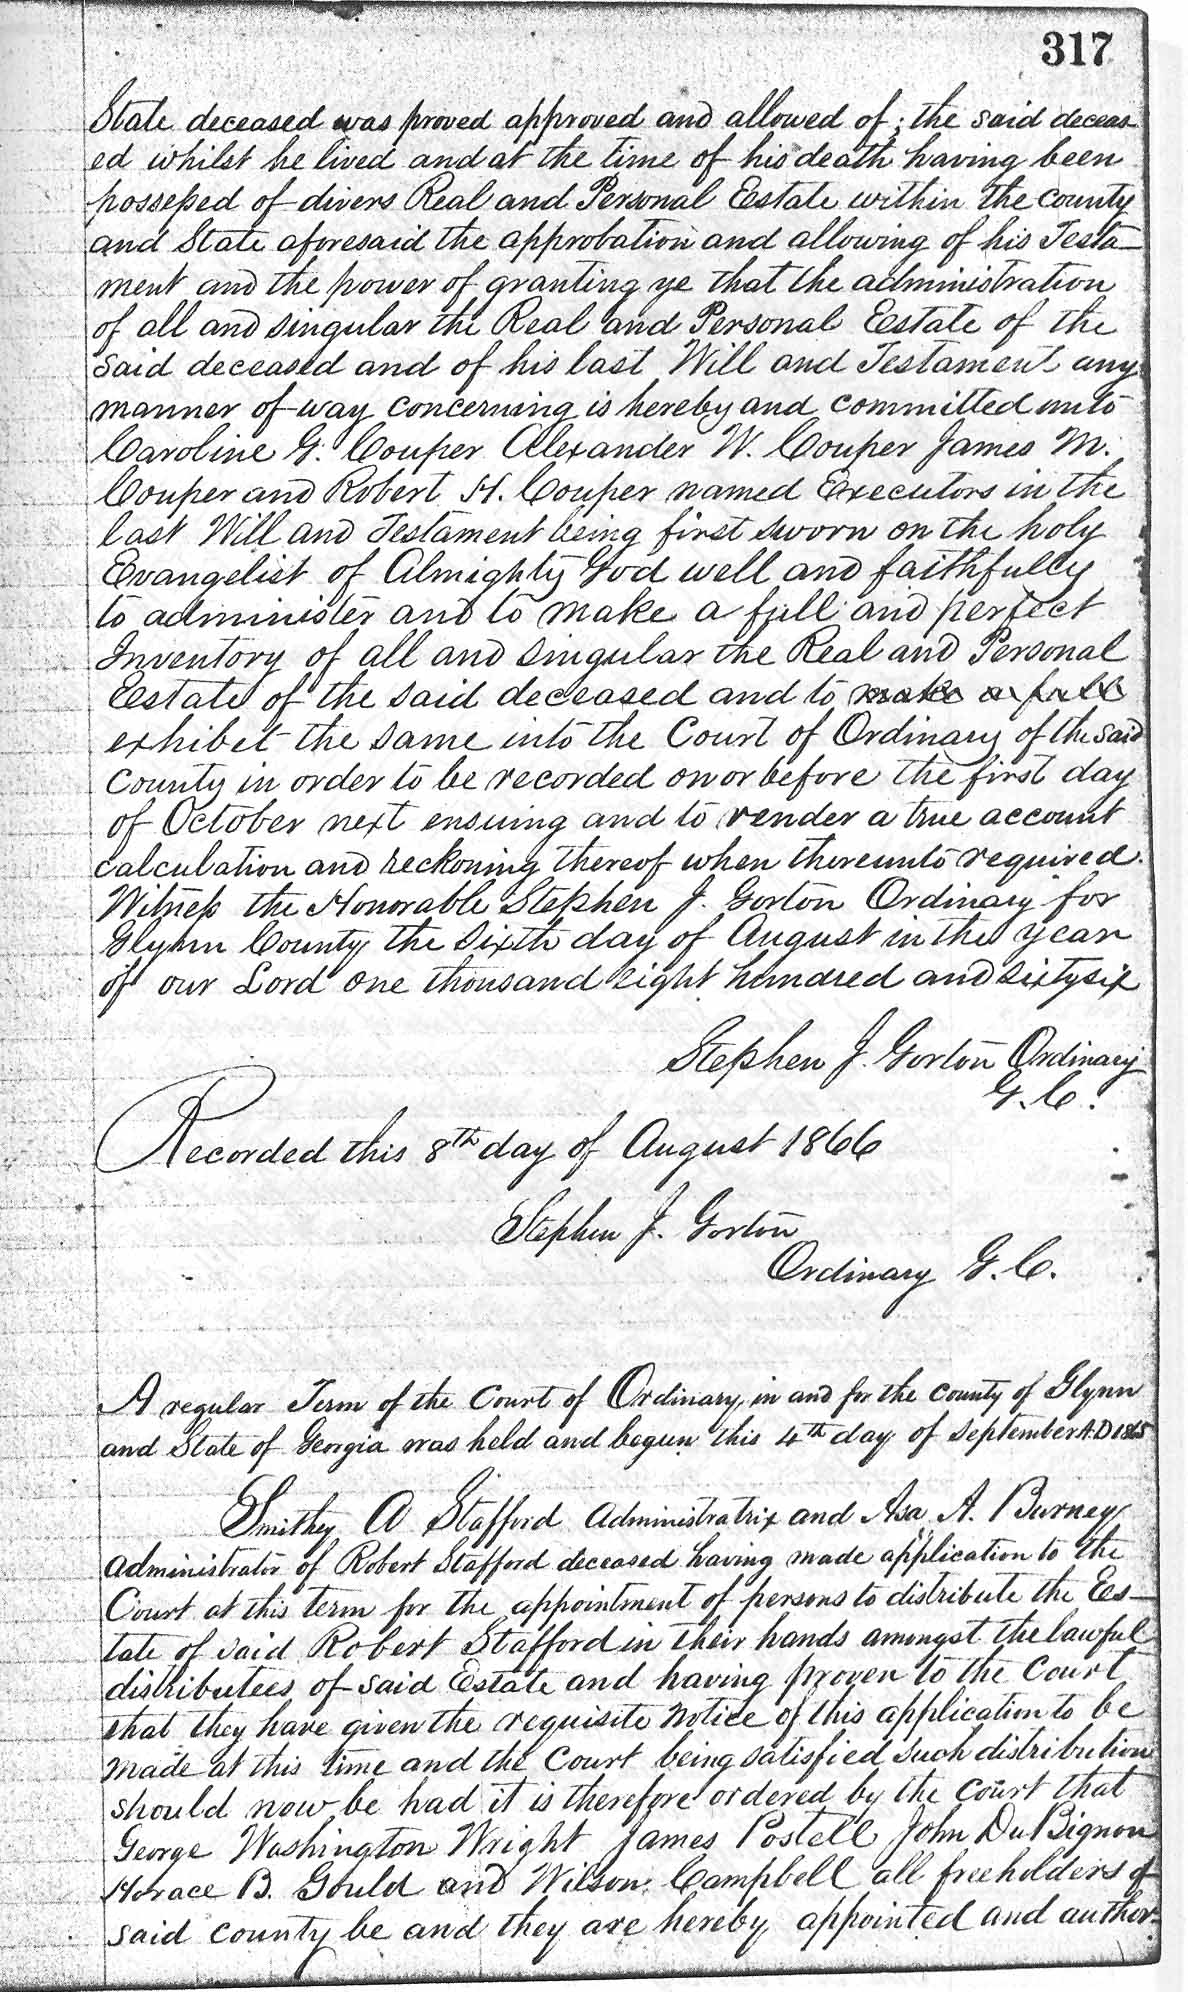 317
State deceased was proved approved and allowed of; the said deceas-
ed whilst he lived and at the time of his death having been
possessed of divers Real and Personal Estate within the county
and State aforesaid the approbation and allowing of his Testa-
ment and the power of granting ye that the administration
of all and singular the Real and Personal Estate of the
said deceased and of his last Will and Testament any
manner of way concerning is hereby and committed unto
Caroline G. Couper Alexander W. Couper James M.
Couper and Robert H. Couper named Executors in the
last Will and Testament being first sworn on the holy
Evangelist of Almighty God well and faithfully
to administer and to make a full and perfect
Inventory of all and singular the Real and Personal
Estate of the said deceased and to make a full
exhibet the same into the Court of Ordinary of the said
County in order to be recorded on or before the first day
of October next ensuing and to render a true account
calculation and reckoning thereof when thereunto required.
Witness the Honorable Stephen J. Gorton Ordinary for
Glynn County the sixth day of August in the year
of our Lord one thousand eight hundred and sixtysix
Stephen J. Gorton Ordinary
G.C.
Recorded this 8th day of August 1866
Stephen J. Gorton
Ordinary G.C.
A regular Term of the Court of Ordinary, in and for the county of Glynn
and State of Georgia was held and begun this 4th day of September A.D 1865
Smithey A Stafford Administratrix and Asa A. Burney
administrator of Robert Stafford deceased having made application to the
Court at this term for the appointment of persons to distribute the Es-
tate of said Robert Stafford in their hands amongst the lawful
distributees of said Estate and having proven to the Court
that they have given the requisite Notice of this application to be
made at this time and the Court being satisfied such distribution
should now be had it is therefore ordered by the court that
George Washington Wright James Postell John DuBignon
Horace B. Gould and Wilson Campbell all freeholders of
said county be and they are hereby appointed and author-